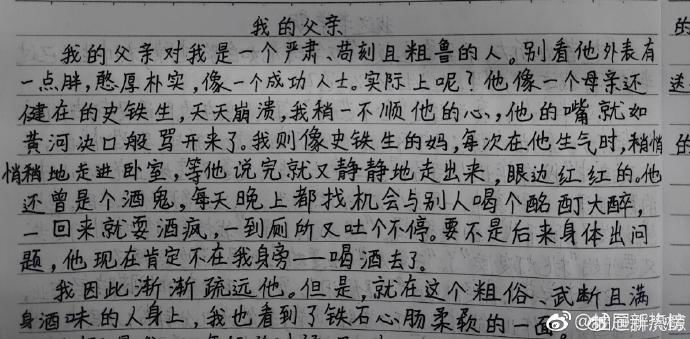 我的父亲
我的父亲对我是一个严肃、苛刻且粗鲁的人。别看他外表有
一点胖,憨厚朴实,像一个成功人士。实际上呢?他像一个母亲还
健在的史铁生,天天崩溃,我稍一不顺他的心,他的嘴就如
黄河决口般骂开来了。我则像史铁生的妈,每次在他生气时,稍悄
悄稍地走进卧室,等他说完就又静静地走出来,眼边红红的。他
还曾是个酒鬼,每天晚上都找机会与别人喝个酩酊大醉,
一回来就耍酒疯,一到厕所又吐个不停。要不是后来身体出问
题,他现在肯定不在我身旁——喝酒去了。
我因此渐渐疏远他。但是,就在这个粗俗、武断且满
身酒味的人身上,我也看到了铁石心肠柔软的一面。
的
送
的